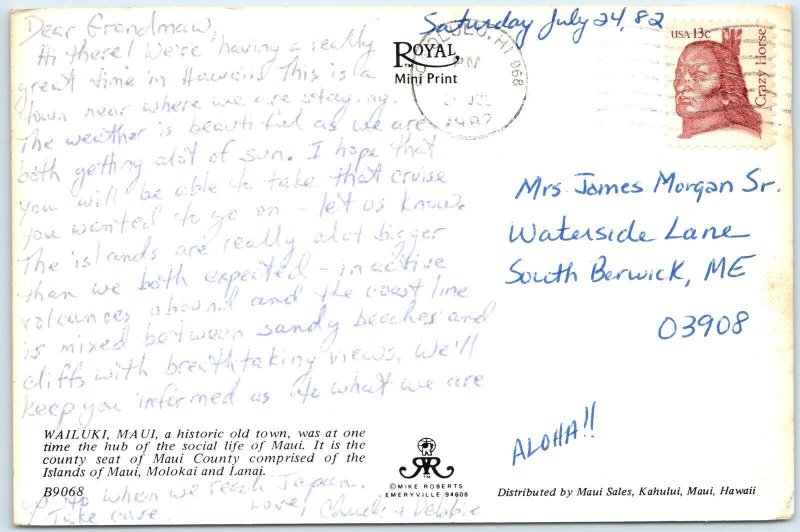 Saturday July 24, 82
Dear Grandmaw,
Hi there! We're having a really
great time in Hawaii. This is a
town near where we are staying.
The weather is beautiful as we are
both getting alot of sun. I hope that
you will be able to take that cruise
you wanted to go on - let us know.
The islands are really alot bigger
than we both expected - inactive
volcanoes abound and the coast line
is mixed between sandy beaches and
cliffs with breathtaking views. We'll
keep you informed as to what we are
up to when we reach Japan.
Take care
Love, Chuck + Debbie
WAILUKI, MAUI, a historic old town, was at one
time the hub of the social life of Maui. It is the
county seat of Maui County comprised of the
Islands of Maui, Molokai and Lanai.
B9068
ROYAL
Mini Print
HI 968
PM
JUL
1982
USA 13c
Crazy Horse
Mrs James Morgan Sr.
Waterside Lane
South Berwick, ME
03908
ALOHA!!
TM
© MIKE ROBERTS
EMERYVILLE 94608
Distributed by Maui Sales, Kahului, Maui, Hawaii